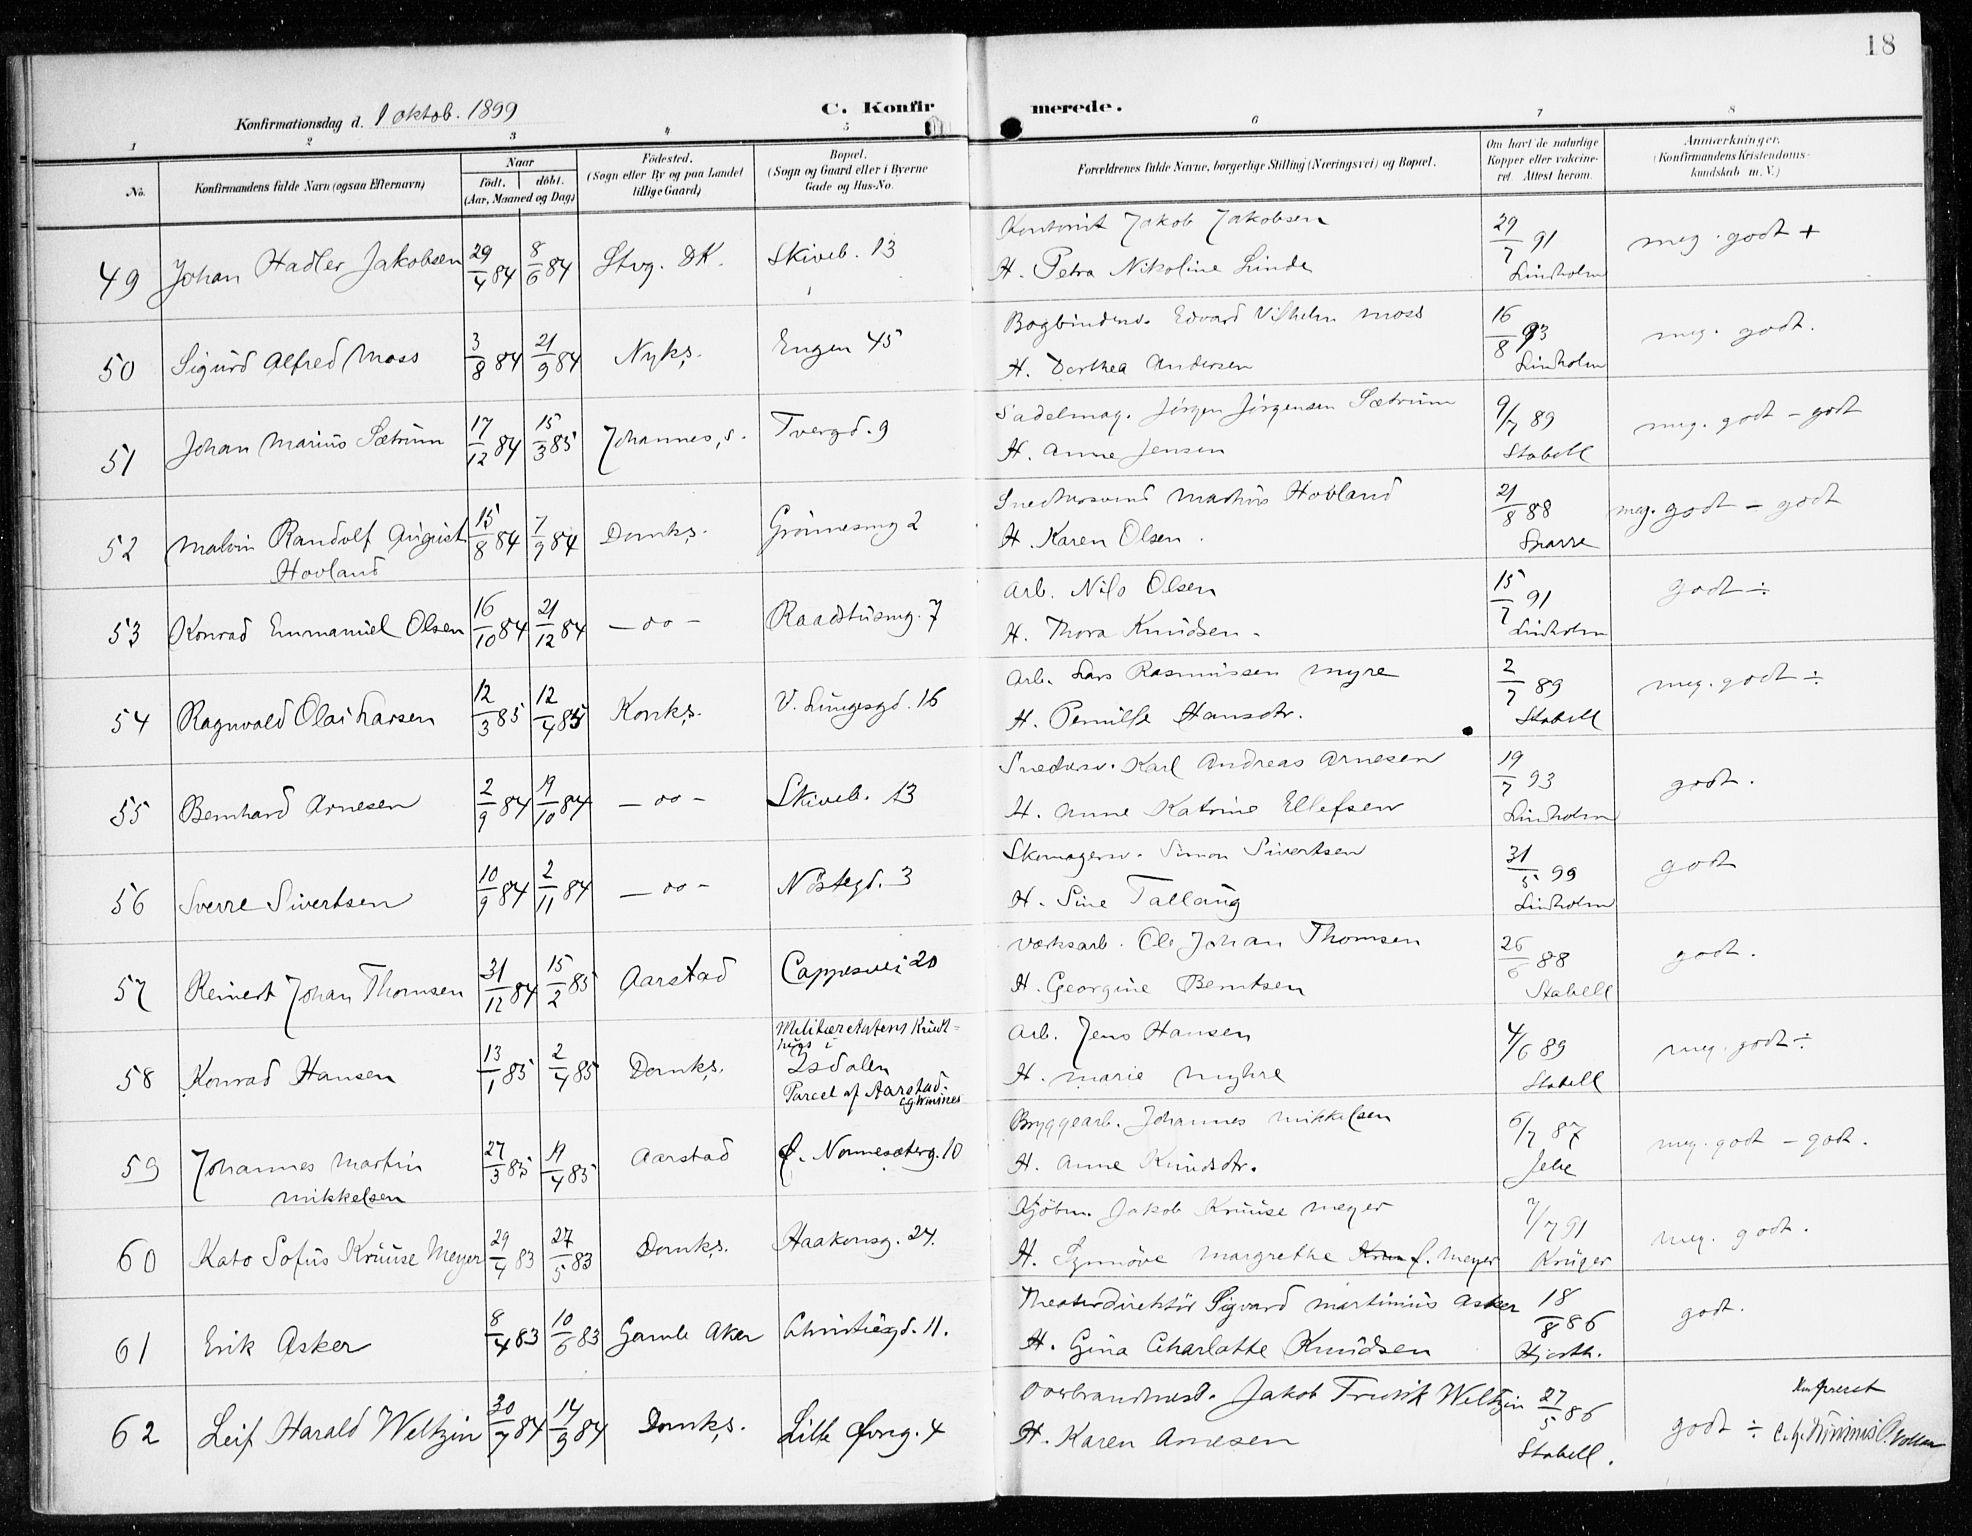 18
Konfirmationsdag d. 1 oktob. 1899
C. Konfirmerede.
1 2 3 4 5 6 7 8
No.
Konfirmandens fulde Navn (ogsaa Efternavn)
Naar
födt. döbt.
(Aar, Maaned og Dag)
Födested.
(Sogn eller By og paa Landet
tillige Gaard)
Bopæl.
(Sogn og Gaard eller i Byerne
Gade og Hus-No.
Forældrenes fulde Navne, borgerlige Stilling (Næringsvei) og Bopæl.
Om havt de naturlige
Kopper eller vakcine-
ret. Attest herom.
Anmærkninger.
(Konfirmandens Kristendoms-
kundskab m. V.)
49 Johan Hadler Jakobsen 29/4 84 8/6 84 Stvg. DK. Skiveb. 13
Kontorist Jakob Jakobsen
H. Petra Nikoline Linde
29/7 91
Lindholm
meg. godt +
50 Sigurd Alfred Moss 3/8 84 21/9 84 Nyks. Engen 45
Bogbindersv. Edvard Vilhelm Moss
H. Dorthea Andersen
16/8 93
Lindholm
meg. godt.
51 Johan Marius Sætrum 17/12 84 15/3 85 Johannes, s. Tvergd. 9
Sadelmag. Jörgen Jörgensen Sætrum
H. Anne Jensen
9/7 89
Stabell
meg. godt - godt
52 Malvin Randolf August
Hovland
15/8 84 7/9 84 Domks. Grönnesmg 2
Snedkersvend Mathias Hovland
H. Karen Olsen.
21/8 88
Sparre
meg. godt - godt
53 Konrad Emmanuel Olsen 16/10 84 21/12 84 — oo — Raadstusmg. 7
Arb. Nils Olsen
H. Thora Knudsen.
15/7 91
Lindholm
godt ÷
54 Ragnvald Olai Larsen 12/3 85 12/4 85 Korsks. V. Lungegd. 16
Arb. Lars Rasmussen Myre
H. Pernille Hansdtr.
2/7 89
Stabell
meg. godt ÷
55 Bernhard Arnesen 2/9 84 19/10 84 — oo — Skiveb. 13
Snedkersv. Karl Andreas Arnesen
H. Anne Katrine Ellefsen
19/7 93
Lindholm
godt.
56 Sverre Sivertsen 10/9 84 2/11 84 — oo — Nöstegd. 3
Skomagersv. Simon Sivertsen
H. Sine Tallaug
31/5 99
Lindholm
godt
57 Reinert Johan Thomsen 31/12 84 15/2 85 Aarstad Cappesvei 20
Værksarb. Ole Johan Thomsen
H. Georgine Berntsen
26/6 88
Stabell
godt.
58 Konrad Hansen 13/1 85 2/4 85 Domks.
Militæretatens Krudt-
hus i
Isdalen
Parcel af Aarstad.
Arb. Jens Hansen
H. Marie Myhre
4/6 89
Stabell
meg. godt ÷
59 Johannes Martin
Mikkelsen
27/3 85 19/4 85 Aarstad Ø. Nonnesæterg. 10
Bryggearb. Johannes Mikkelsen
H. Anne Knudsdtr.
6/7 87
Jebe
meg. godt - godt.
60 Kato Sofus Kruuse Meyer 29/4 83 27/5 83 Domks. Haakonsg. 24.
Kjöbm. Jakob Kruuse Meyer
H. Synnöve Margrethe f. Meyer
7/7 91
Krüger
meg. godt.
61 Erik Asker 8/4 83 10/6 83 Gamle Aker Christiesgd. 11.
Theaterdirektör Sigvard Martinius Asker
H. Gina Charlotte Knudsen
18/8 86
Hjorth.
godt.
62 Leif Harald Weltzin 30/7 84 14/9 84 Domks. Lille Øvreg. 4
Overbrandmest. Jakob Fredrik Weltzin
H. Karen Arnesen
27/5 86
Stabell.
godt ÷
Konfereret